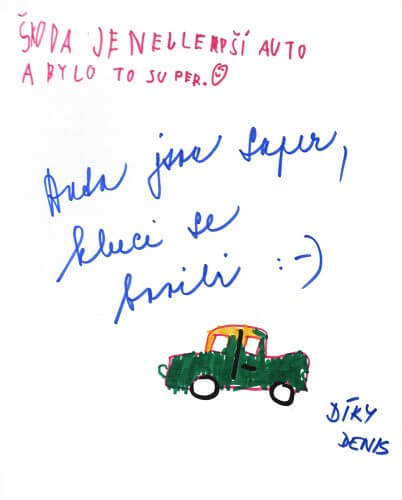 ŠKODA JE NELLEPŠÍ AUTO
A BYLO TO SUPER.
Auta jsou super,
kluci se
bavili :-)
DÍKY
DENIS